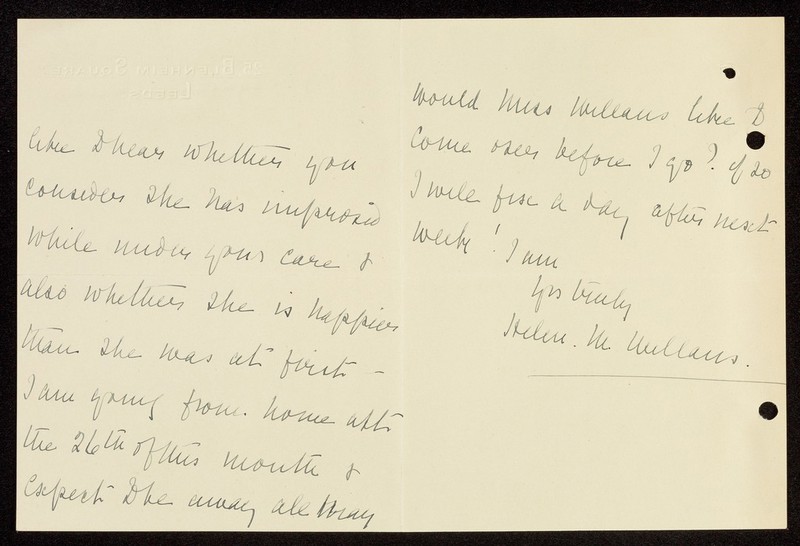 like to hear whether you
consider she has improved
while under your care &
also whether she is happier
than she was at first –
I am going from home aft
the 26th of this month &
expect to be away all May
would Miss Willans like to
come over before I go? if so
I will fix a day after next
week! I am
yrs truly
Helen. M. Willans.
25 BLENHEIM SQUARE
LEEDS